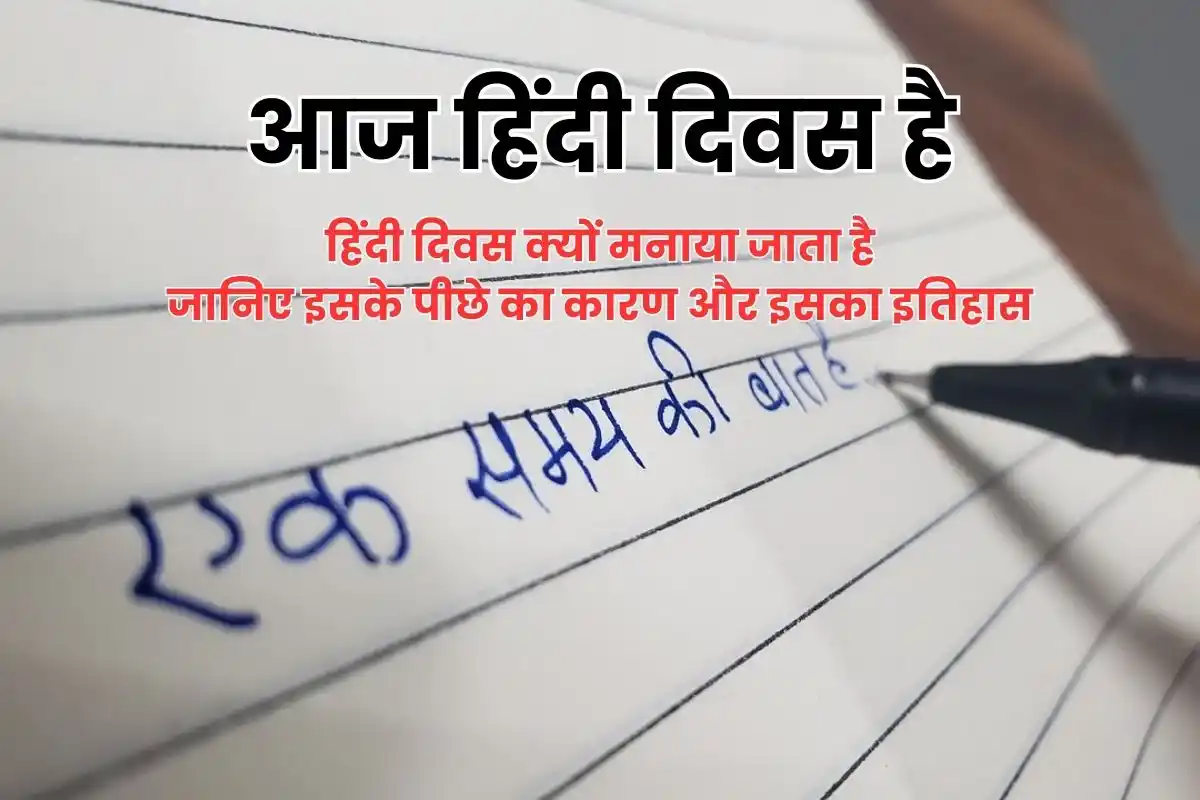 आज हिंदी दिवस है
हिंदी दिवस क्यों मनाया जाता है
जानिए इसके पीछे का कारण और इसका इतिहास
एक समय की बात है..